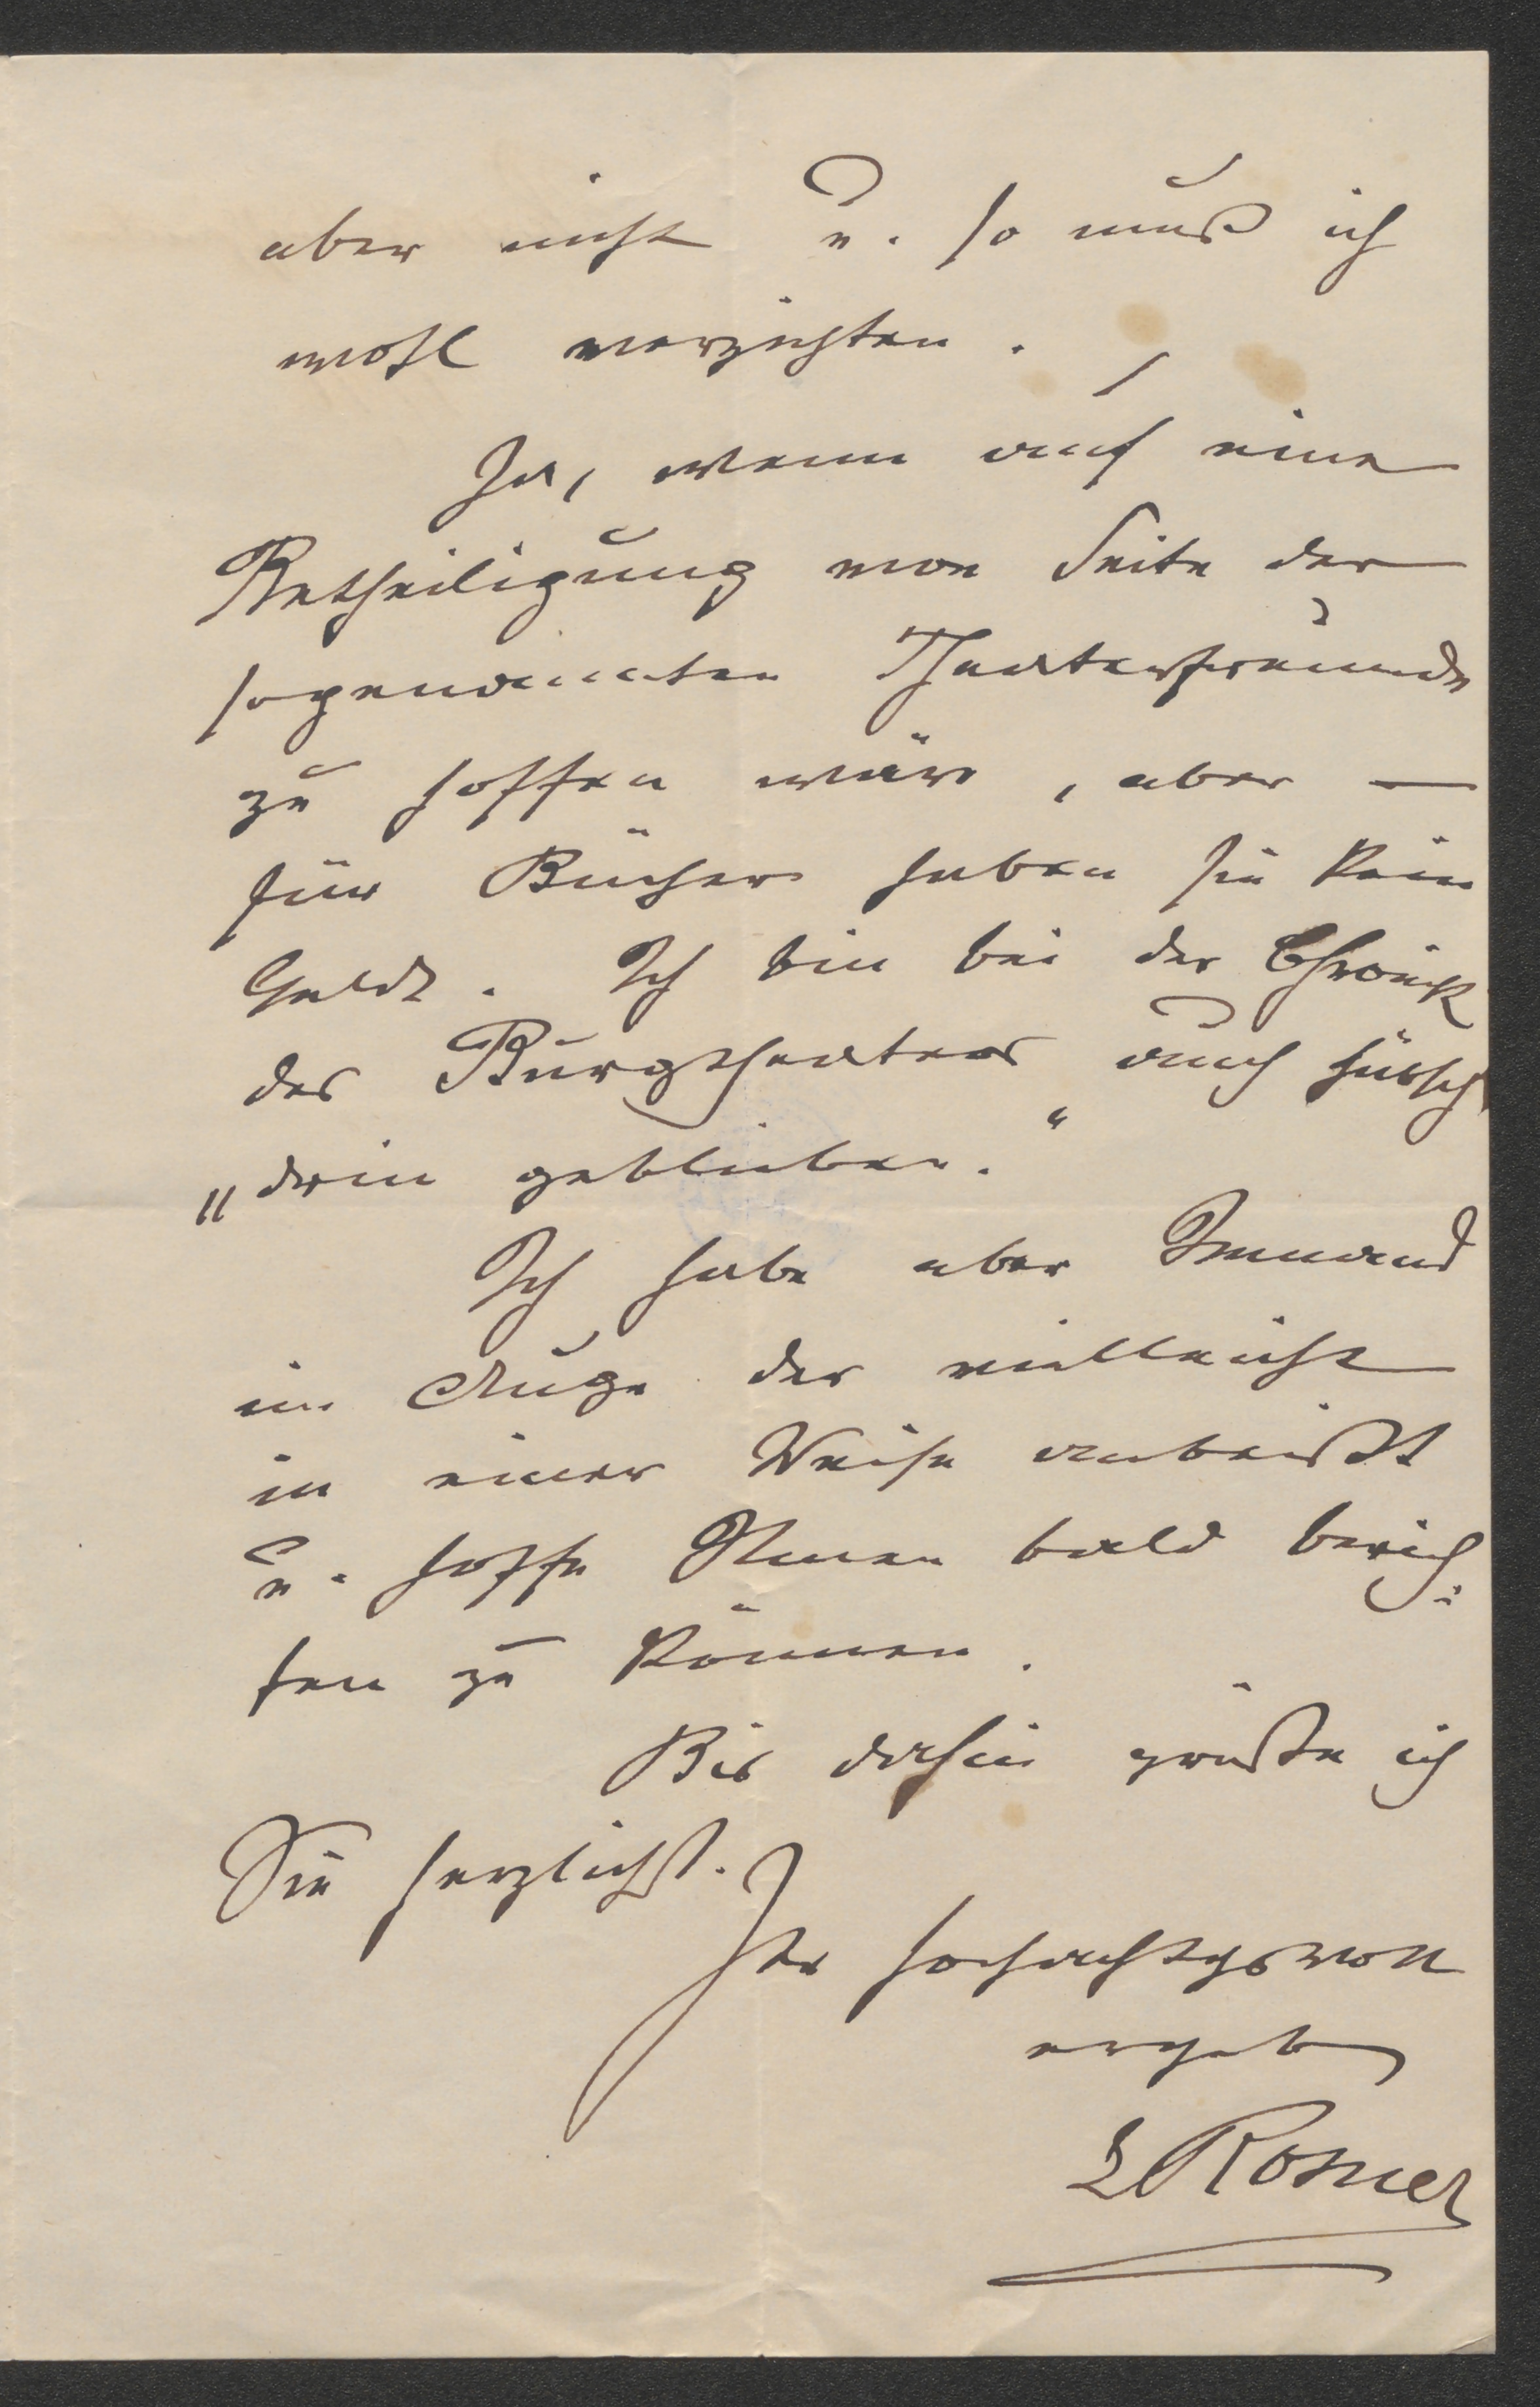 aber nicht u. so muß ich
wohl verzichten.
Ja, wenn auf eine
Betheiligung von Seite der
sogenannten Theaterfreunde
zu hoffen wäre, aber —
für Bücher haben sie kein
Geld. Ich bin bei der Chronik
des Burgtheaters auch hübsch
„drin geblieben.“
Ich habe aber Jemand
im Auge der vielleicht
in einer Weise anbeißt
u. hoffe Ihnen bald berich-
ten zu können.
Bis dahin grüße ich
Sie herzlichst.
Ihr hochachtgsvoll
ergeb
L Rosner